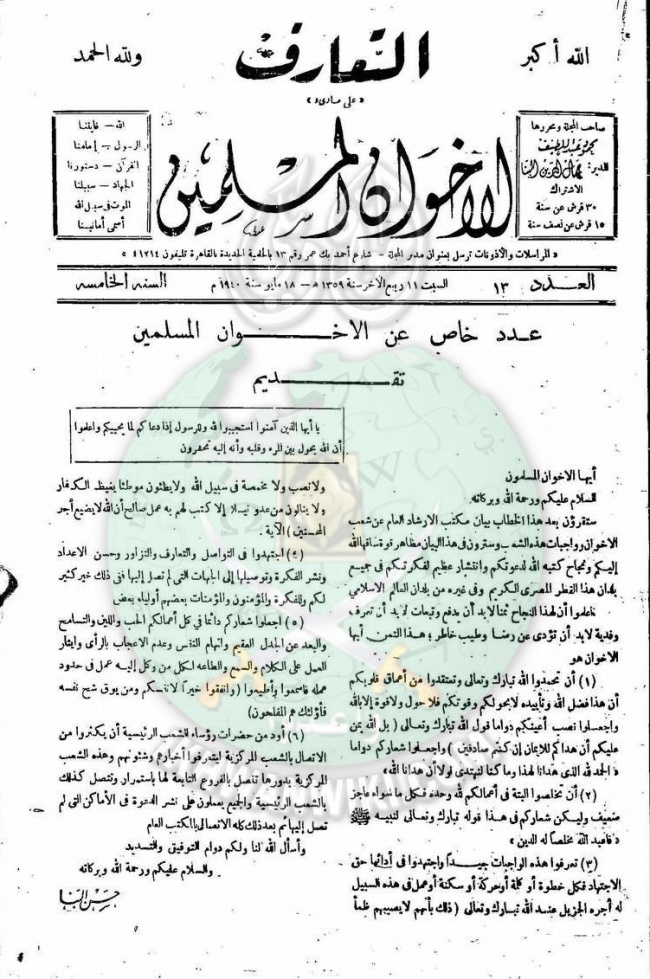 الله أكبر
التعارف
ولله الحمد
صاحب المجلة ومحررها
محمود عبد اللطيف
المدير:
الاشتراك
٣٠ قرش عن سنة
١٥ قرش عن نصف سنة
الاخوان المسلمين
الله – غايتنا
الرسول – إمامنا
القرآن – دستورنا
الجهاد – سبيلنا
الموت فى سبيل الله
أسمى أمانينا
المراسلات والأذونات ترسل بعنوان مدير المجلة – شارع أحمد بك عمر رقم ١٣ بالحلمية الجديدة بالقاهرة تليفون ٤١٧١٤
العدد ١٣
السبت ١١ ربيع الآخر سنة ١٣٥٩ هـ – ١٨ مايو سنة ١٩٤٠ م
السنة الخامسة
عدد خاص عن الاخوان المسلمين
تقديم
أيها الاخوان المسلمون
السلام عليكم ورحمة الله وبركاته
ستقرؤن بعد هذا الخطاب بيان مكتب الارشاد العام عن شعب
الاخوان وواجبات هذه الشعب وسترون فى هذا البيان مظاهر قوة ساقها الله
إليكم ونجاح كتبه الله لدعوتكم وانتشار عظيم لفكرتكم فى جميع
بلدان هذا القطر المصرى الكريم وفى غيره من بلدان العالم الاسلامى
فاعلموا أن لهذا النجاح ثمنا لابد أن يدفع وتبعات لابد أن تعرف
وفدية لابد أن تؤدى عن رضا وطيب خاطر ؛ هذا الثمن أيها
الاخوان هو
(١) أن تحمدوا الله تبارك وتعالى وتعتقدوا من أعماق قلوبكم
أن هذا فضل الله وتأييده لا بحولكم وقوتكم فلا حول ولا قوة إلا بالله
واجعلوا نصب أعينكم دواما قول الله تبارك وتعالى ( بل الله يمن
عليكم أن هداكم للايمان إن كنتم صادقين ) واجعلوا شعاركم دواما
« الحمد لله الذى هدانا لهذا وما كنا لنهتدى لولا أن هدانا الله »
(٢) أن تخلصوا النية فى أعمالكم لله وحده فكل ما سواه عاجز
ضعيف وليكن شعاركم فى هذا قوله تبارك وتعالى لنبيه ﷺ
« فاعبد الله مخلصا له الدين »
(٣) تعرفوا هذه الواجبات جيدا واجتهدوا فى أدائها حق
الاجتهاد فكل خطوة أو كلمة أو حركة أو سكنة أو عمل فى هذه السبيل
له أجره الجزيل عند الله تبارك وتعالى ( ذلك بأنهم لا يصيبهم ظمأ
يا أيها الذين آمنوا استجيبوا لله وللرسول إذا دعاكم لما يحييكم واعلموا
أن الله يحول بين المرء وقلبه وأنه إليه تحشرون
ولا نصب ولا مخمصة فى سبيل الله ولا يطئون موطئا يغيظ الكفار
ولا ينالون من عدو نيلا إلا كتب لهم به عمل صالح إن الله لا يضيع أجر
المحسنين ) الآية .
(٤) اجتهدوا فى التواصل والتعارف والتزاور وحسن الاعداد
ونشر الفكرة وتوصيلها إلى الجهات التى لم تصل إليها ففى ذلك خير كثير
لكم وللفكرة والمؤمنون والمؤمنات بعضهم أولياء بعض
(٥) اجعلوا شعاركم دائما فى كل أعمالكم الحب واللين والتسامح
والبعد عن الجدل العقيم واتهام النفس وعدم الاعجاب بالرأى وايثار
العمل على الكلام والسمع والطاعة لكل من وكل إليه عمل فى حدود
عمله فاسمعوا وأطيعوا ( وانفقوا خيرا لأنفسكم ومن يوق شح نفسه
فأولئك هم المفلحون )
(٦) أود من حضرات رؤساء الشعب الرئيسية أن يكثروا من
الاتصال بالشعب المركزية ليتعرفوا أخبارها وشئونهم وهذه الشعب
المركزية بدورها تتصل بالفروع التابعة لها باستمرار وتتصل كذلك
بالشعب الرئيسية والجميع يعملون على نشر الدعوة فى الأماكن التى لم
تصل إليها ثم بعد ذلك كله الاتصال بالمكتب العام
وأسأل الله لنا ولكم دوام التوفيق والتسديد
والسلام عليكم ورحمة الله وبركاته
حسن البنا